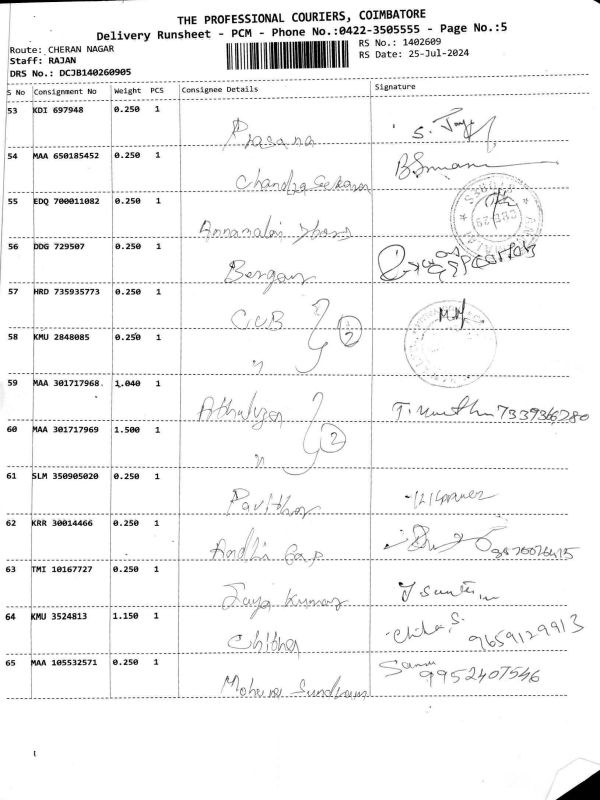 THE PROFESSIONAL COURIERS, COIMBATORE
Delivery Runsheet - PCM - Phone No.:0422-3505555 - Page No.:5
Route: CHERAN NAGAR
RS No.: 1402609
Staff: RAJAN
RS Date: 25-Jul-2024
DRS No.: DCJB140260905
S No Consignment No Weight PCS Consignee Details Signature
53 KDI 697948 0.250 1
Prasana
54 MAA 650185452 0.250 1
Chandra Sekaran
55 EDQ 700011082 0.250 1
Annamalai
56 DDG 729507 0.250 1
57 HRD 735935773 0.250 1
CUB 2
58 KMU 2848085 0.250 1
"
59 MAA 301717968 1.040 1
7339366280
60 MAA 301717969 1.500 1
" 2
61 SLM 350905020 0.250 1
62 KRR 30014466 0.250 1
63 TMI 10167727 0.250 1
Jaya Kumar
64 KMU 3524813 1.150 1
Chitha Chitha S. 9659129913
65 MAA 105532571 0.250 1
9952407546